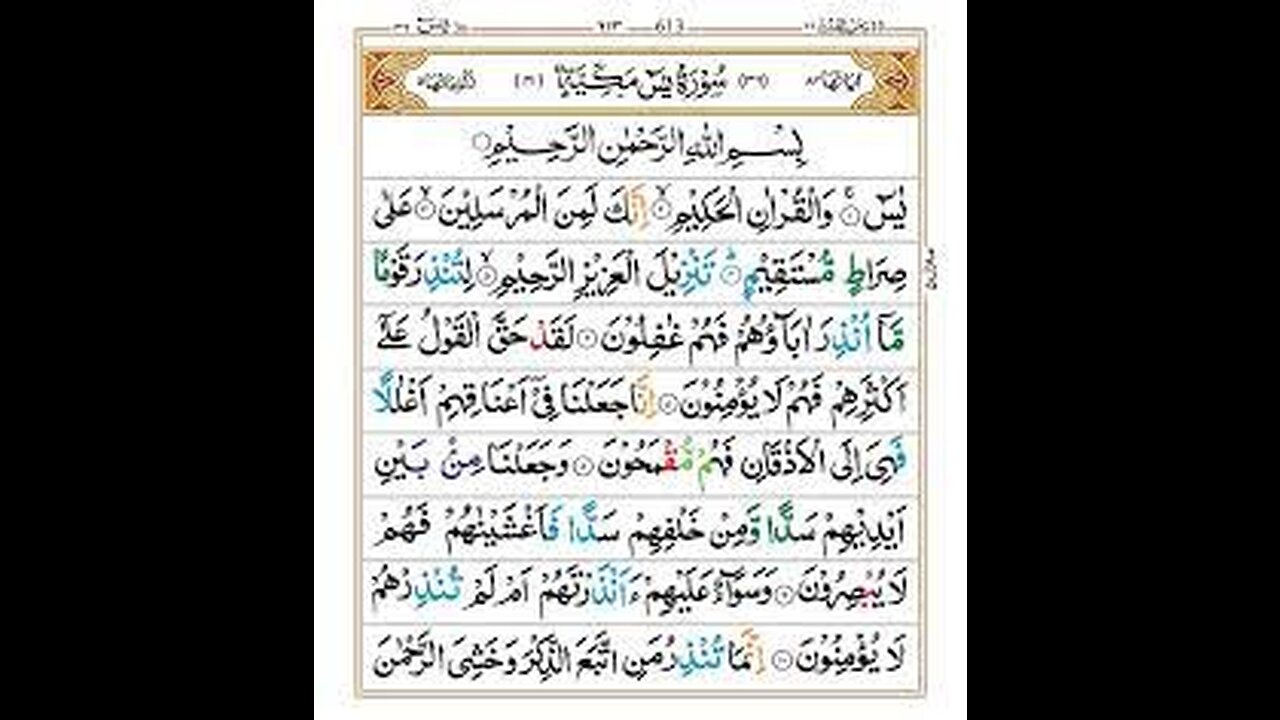 ٦١٣ 613
سُوْرَةُ يٰسٓ مَكِّيَّةٌ
بِسْمِ اللهِ الرَّحْمٰنِ الرَّحِيْمِ
يٰسٓ وَالْقُرْاٰنِ الْحَكِيْمِ اِنَّكَ لَمِنَ الْمُرْسَلِيْنَ عَلٰى
صِرَاطٍ مُّسْتَقِيْمٍ تَنْزِيْلَ الْعَزِيْزِ الرَّحِيْمِ لِتُنْذِرَ قَوْمًا
مَّاۤ اُنْذِرَ اٰبَآؤُهُمْ فَهُمْ غٰفِلُوْنَ لَقَدْ حَقَّ الْقَوْلُ عَلٰۤى
اَكْثَرِهِمْ فَهُمْ لَا يُؤْمِنُوْنَ اِنَّا جَعَلْنَا فِيْۤ اَعْنَاقِهِمْ اَغْلٰلًا
فَهِيَ اِلَى الْاَذْقَانِ فَهُمْ مُّقْمَحُوْنَ وَجَعَلْنَا مِنْۢ بَيْنِ
اَيْدِيْهِمْ سَدًّا وَّمِنْ خَلْفِهِمْ سَدًّا فَاَغْشَيْنٰهُمْ فَهُمْ
لَا يُبْصِرُوْنَ وَسَوَآءٌ عَلَيْهِمْ ءَاَنْذَرْتَهُمْ اَمْ لَمْ تُنْذِرْهُمْ
لَا يُؤْمِنُوْنَ اِنَّمَا تُنْذِرُ مَنِ اتَّبَعَ الذِّكْرَ وَخَشِيَ الرَّحْمٰنَ